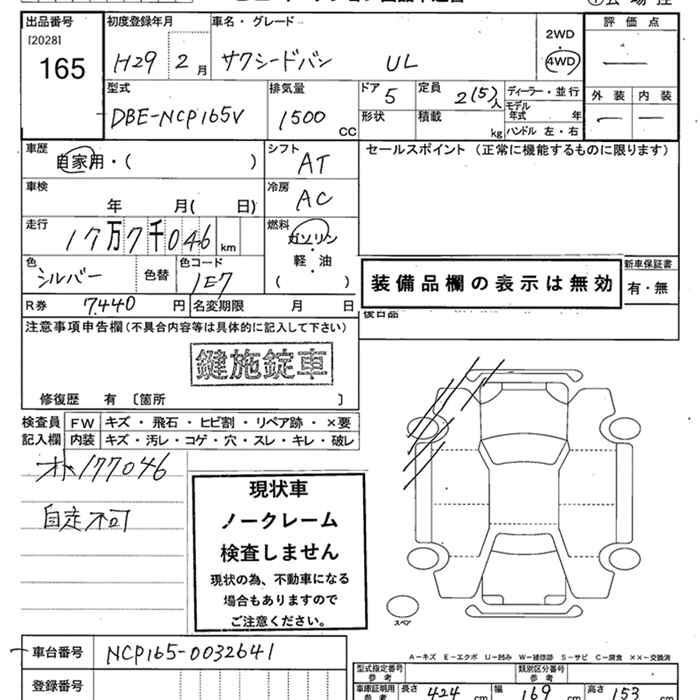 出品番号 初度登録年月 車名・グレード 評価点
[2028]
165
H29 2月 サクシードバン UL 2WD・4WD —
型式 排気量 ドア 定員 ディーラー・並行 外装 内装
DBE-NCP165V 1500 CC 5 2(5)人 モデル年式 年 — —
形状 積載 kg ハンドル 左・右
車歴 シフト セールスポイント (正常に機能するものに限ります)
自家用・( ) AT
車検 冷房
年 月( 日) AC
走行 燃料
17万7千046 km ガソリン・軽油
色 色替 色コード ( )
シルバー 1E7 装備品欄の表示は無効 新車保証書
有・無
R券 7440円 名変期限 月 日
後日品
注意事項申告欄(不具合内容等は具体的に記入して下さい)
鍵施錠車
修復歴 有 〔箇所 〕
検査員 FW キズ・飛石・ヒビ割・リペア跡・×要
記入欄 内装 キズ・汚レ・コゲ・穴・スレ・キレ・破レ
オト177046
自走不可
現状車
ノークレーム
検査しません
現状の為、不動車になる
場合もありますので
ご注意ください。
スペア
車台番号 NCP165-0032641
登録番号
A-キズ E-エクボ U-凹み W-補修跡 S-サビ C-腐食 ××-交換済
型式指定番号 参考 類別区分番号 参考
車庫証明用 参考 長さ 424 cm 幅 169 cm 高さ 153 cm